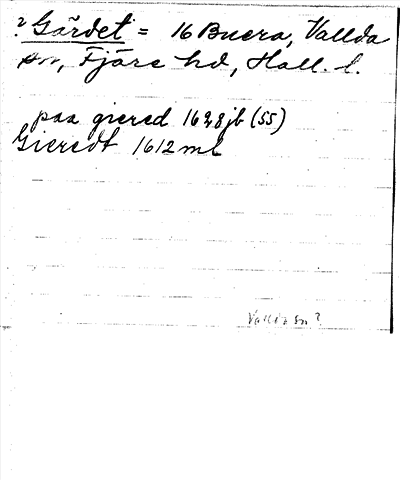 ? Gärdet = 16 Buera, Vallda
sn, Fjäre hd, Hall. l.
paa giered 1628 jb (55)
Gieredt 1612 ml
Vallda sn?